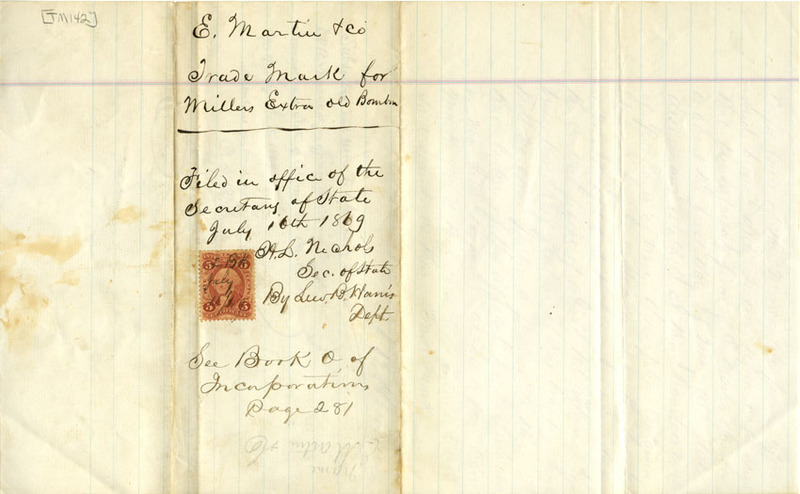 [TM142]
E. Martin & Co
Trade Mark for
Millers Extra Old Bourbon
Filed in office of the
Secretary of State
July 16th 1869
H. L. Nichols
Sec. of State
By Lew. B. Harris
Dept.
See Book O, of
Incorporations
Page 281
5 5
July
5 5
Name
E Martin & Co